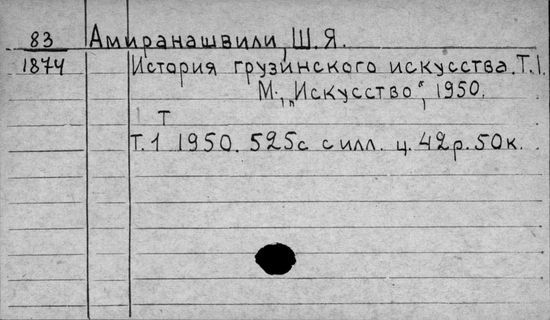 83 Амиранашвили, Ш. Я.
1874 История грузинского искусства. Т. 1.
М., „Искусство", 1950.
Т
Т. 1 1950. 525с с илл. ц. 42р. 50к.